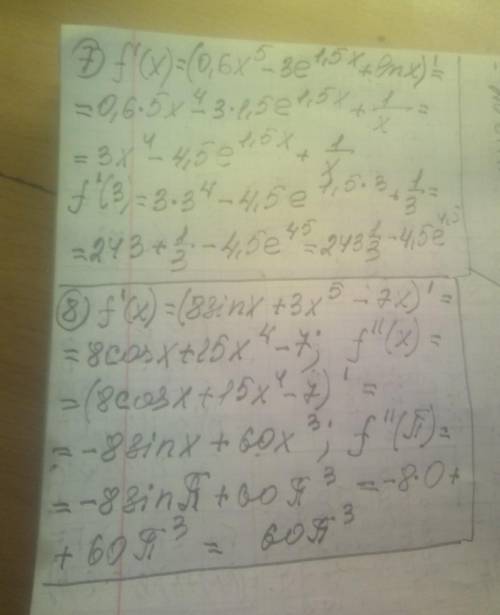 ⑦ f'(x)=(0,6x⁵-3e^1,5x+lnx)'=
=0,6·5x⁴-3·1,5e^1,5x+1/x=
=3x⁴-4,5e^1,5x+1/x
f'(3)=3·3⁴-4,5e^1,5·3+1/3=
=243+1/3-4,5e^45=243 1/3-4,5e^4,5
⑧ f'(x)=(8sinx+3x⁵-7x)'=
=8cosx+15x⁴-7; f''(x)=
=(8cosx+15x⁴-7)'=
=-8sinx+60x³; f''(П)=
=-8sinП+60П³=-8·0+
+60П³=60П³